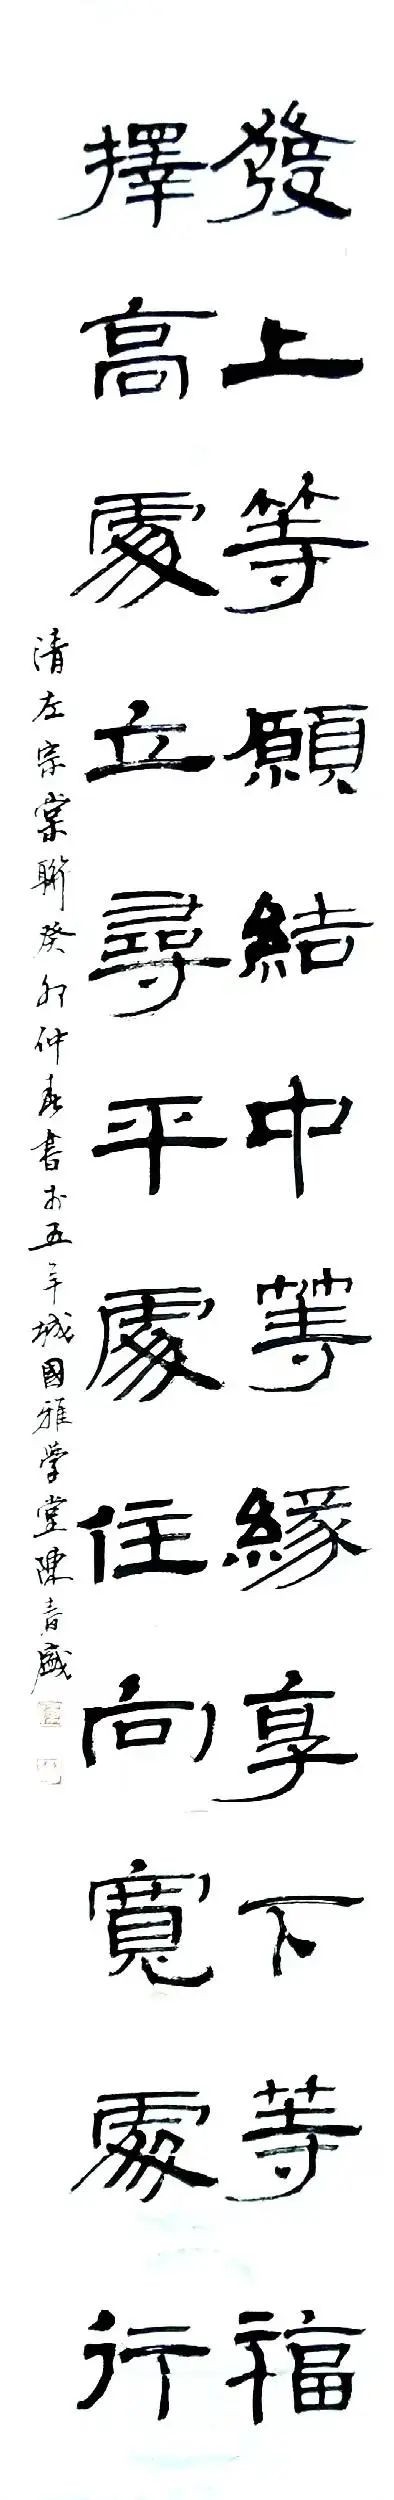 發上等願結中等緣享下等福
擇高處立尋平處住向寬處行
清左宗棠聯癸卯仲春書於五羊城國雅學堂陳青盛